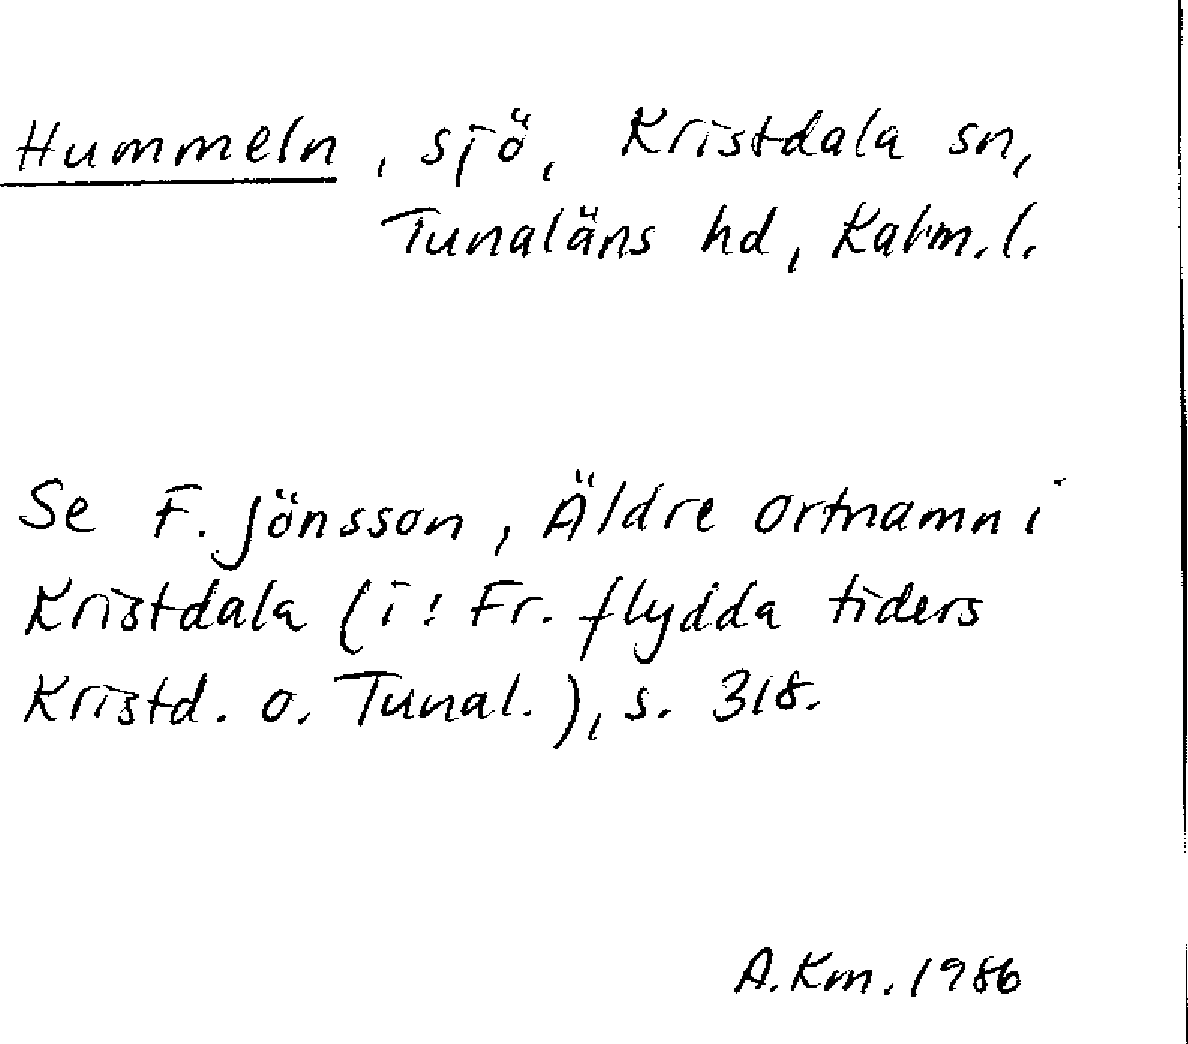 Hummeln, sjö, Kristdala sn,
Tunaläns hd, Kalm. l.
Se F. Jönsson, Äldre ortnamn i
Kristdala (i: Fr. flydda tiders
Kristd. o. Tunal.), s. 318.
A.Km. 1986